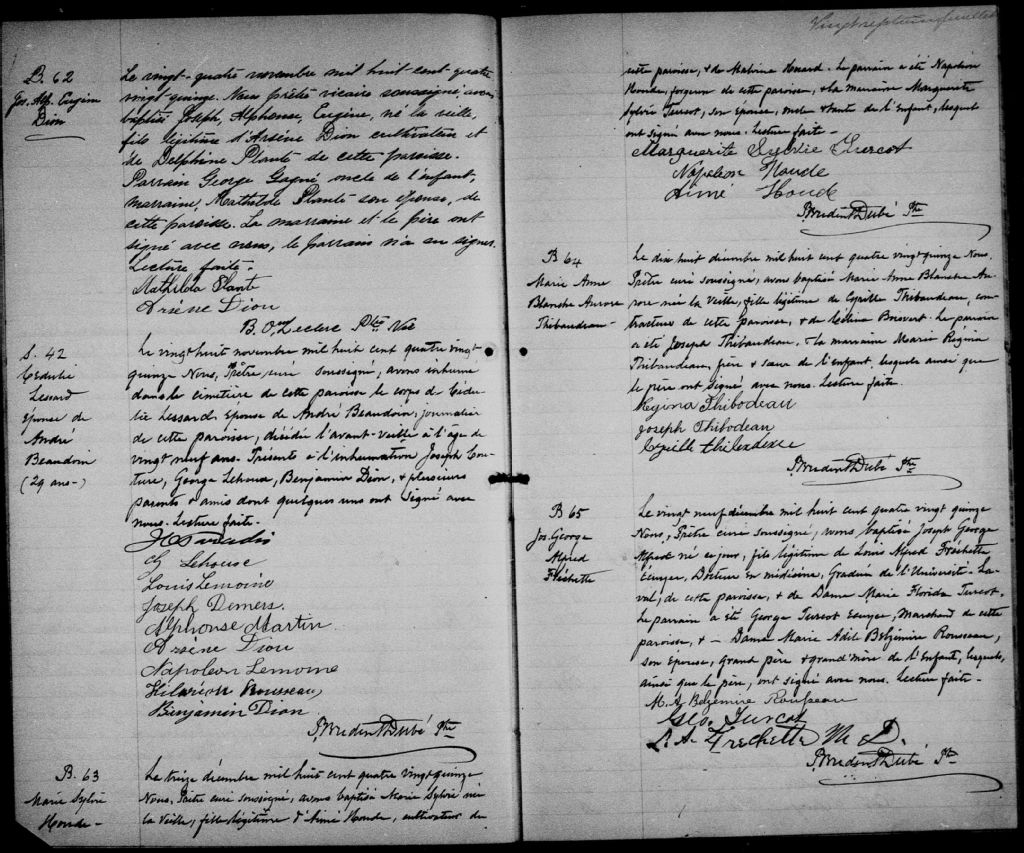 B. 62
Jos. Alf. Eugène
Dion
Le vingt-quatre novembre mil huit cent quatre
vingt-quinze. Nous prêtre vicaire soussigné, avons
baptisé Joseph, Alphonse, Eugène, né la veille,
fils légitime d'Arsène Dion cultivateur et
de Delphine Planté de cette paroisse.
Parrain George Gagné oncle de l'enfant,
marraine, Mathilde Planté son épouse, de
cette paroisse. La marraine et le père ont
signé avec nous, le parrain n'a su signer.
Lecture faite.
Mathilda Plante
Arsène Dion
B. O. Leclerc Ptre Vic
S. 42
Cédulie
Lessard
Epouse de
André
Beaudoin
(29 ans-)
Le vingt huit novembre mil huit cent quatre vingt
quinze Nous, Prêtre curé soussigné, avons inhumé
dans le cimetière de cette paroisse le corps de Cédu-
lie Lessard, Epouse de André Beaudoin, journalier
de cette paroisse, décédée l'avant-veille à l'âge de
vingt neuf ans. Présents à l'inhumation Joseph Cou-
ture, George Lehoux, Benjamin Dion, & plusieurs
parents & amis dont quelques uns ont signé avec
nous. Lecture faite.
G Lehouse
Louis Lemoine
Joseph Demers.
Alphonse Martin
Arsène Dion
Napoleon Lemoine
Hilarion Rousseau
Benjamin Dion
Prudent Dubé Ptre
B. 63
Marie Sylvie
Houde -
Le treize décembre mil huit cent quatre vingt quinze
Nous, Prêtre curé soussigné, avons baptisé Marie Sylvie née
la Veille, fille légitime d'Aimé Houde, cultivateur de
Vingt septième feuillet
cette paroisse, & de Houard. Le parrain a été Napoléon
Houde, forgeron de cette paroisse, & la marraine Marguerite
Sylvie Turcot, son Epouse, oncle & tante de l'Enfant, lesquels
ont signé avec nous. Lecture faite -
Marguerite Sylvie Turcot
Napoleon Houde
Aimé Houde
Prudent Dubé Ptre
B 64
Marie Anne
Blanche Aurore
Thibaudeau -
Le dix huit décembre mil huit cent quatre vingt quinze Nous,
Prêtre curé soussigné, avons baptisé Marie Anne Blanche Au-
rore née la Veille, fille légitime de Cyrille Thibaudeau, con-
tracteur de cette paroisse, & de Boisvert. Le parrain
a été Joseph Thibaudeau, & la marraine Marie Régina
Thibaudeau, frère & sœur de l'Enfant, lesquels ainsi que
le père ont signé avec nous. Lecture faite.
Regina Thibodeau
Joseph Thibodeau
Prudent Dubé Ptre
B 65
Jos. George
Alfred
Fréchette
Le vingt neuf décembre mil huit cent quatre vingt quinze
Nous, Prêtre curé soussigné, avons baptisé Joseph George
Alfred né ce jour, fils légitime de Louis Alfred Fréchette
Ecuyer, Docteur en médecine, Gradué de l'Université La-
val, de cette paroisse, & de Dame Marie Florida Turcot.
Le parrain a été George Turcot Ecuyer, Marchand de cette
paroisse, & - Dame Marie Adèl Belzémire Rousseau,
son Epouse, Grand père & grand'mère de l'Enfant, lesquels,
ainsi que le père, ont signé avec nous. Lecture faite -
M. A. Belzemire Rousseau
Geo. Turcot
L. A. Frechette M. D.
Prudent Dubé Ptre